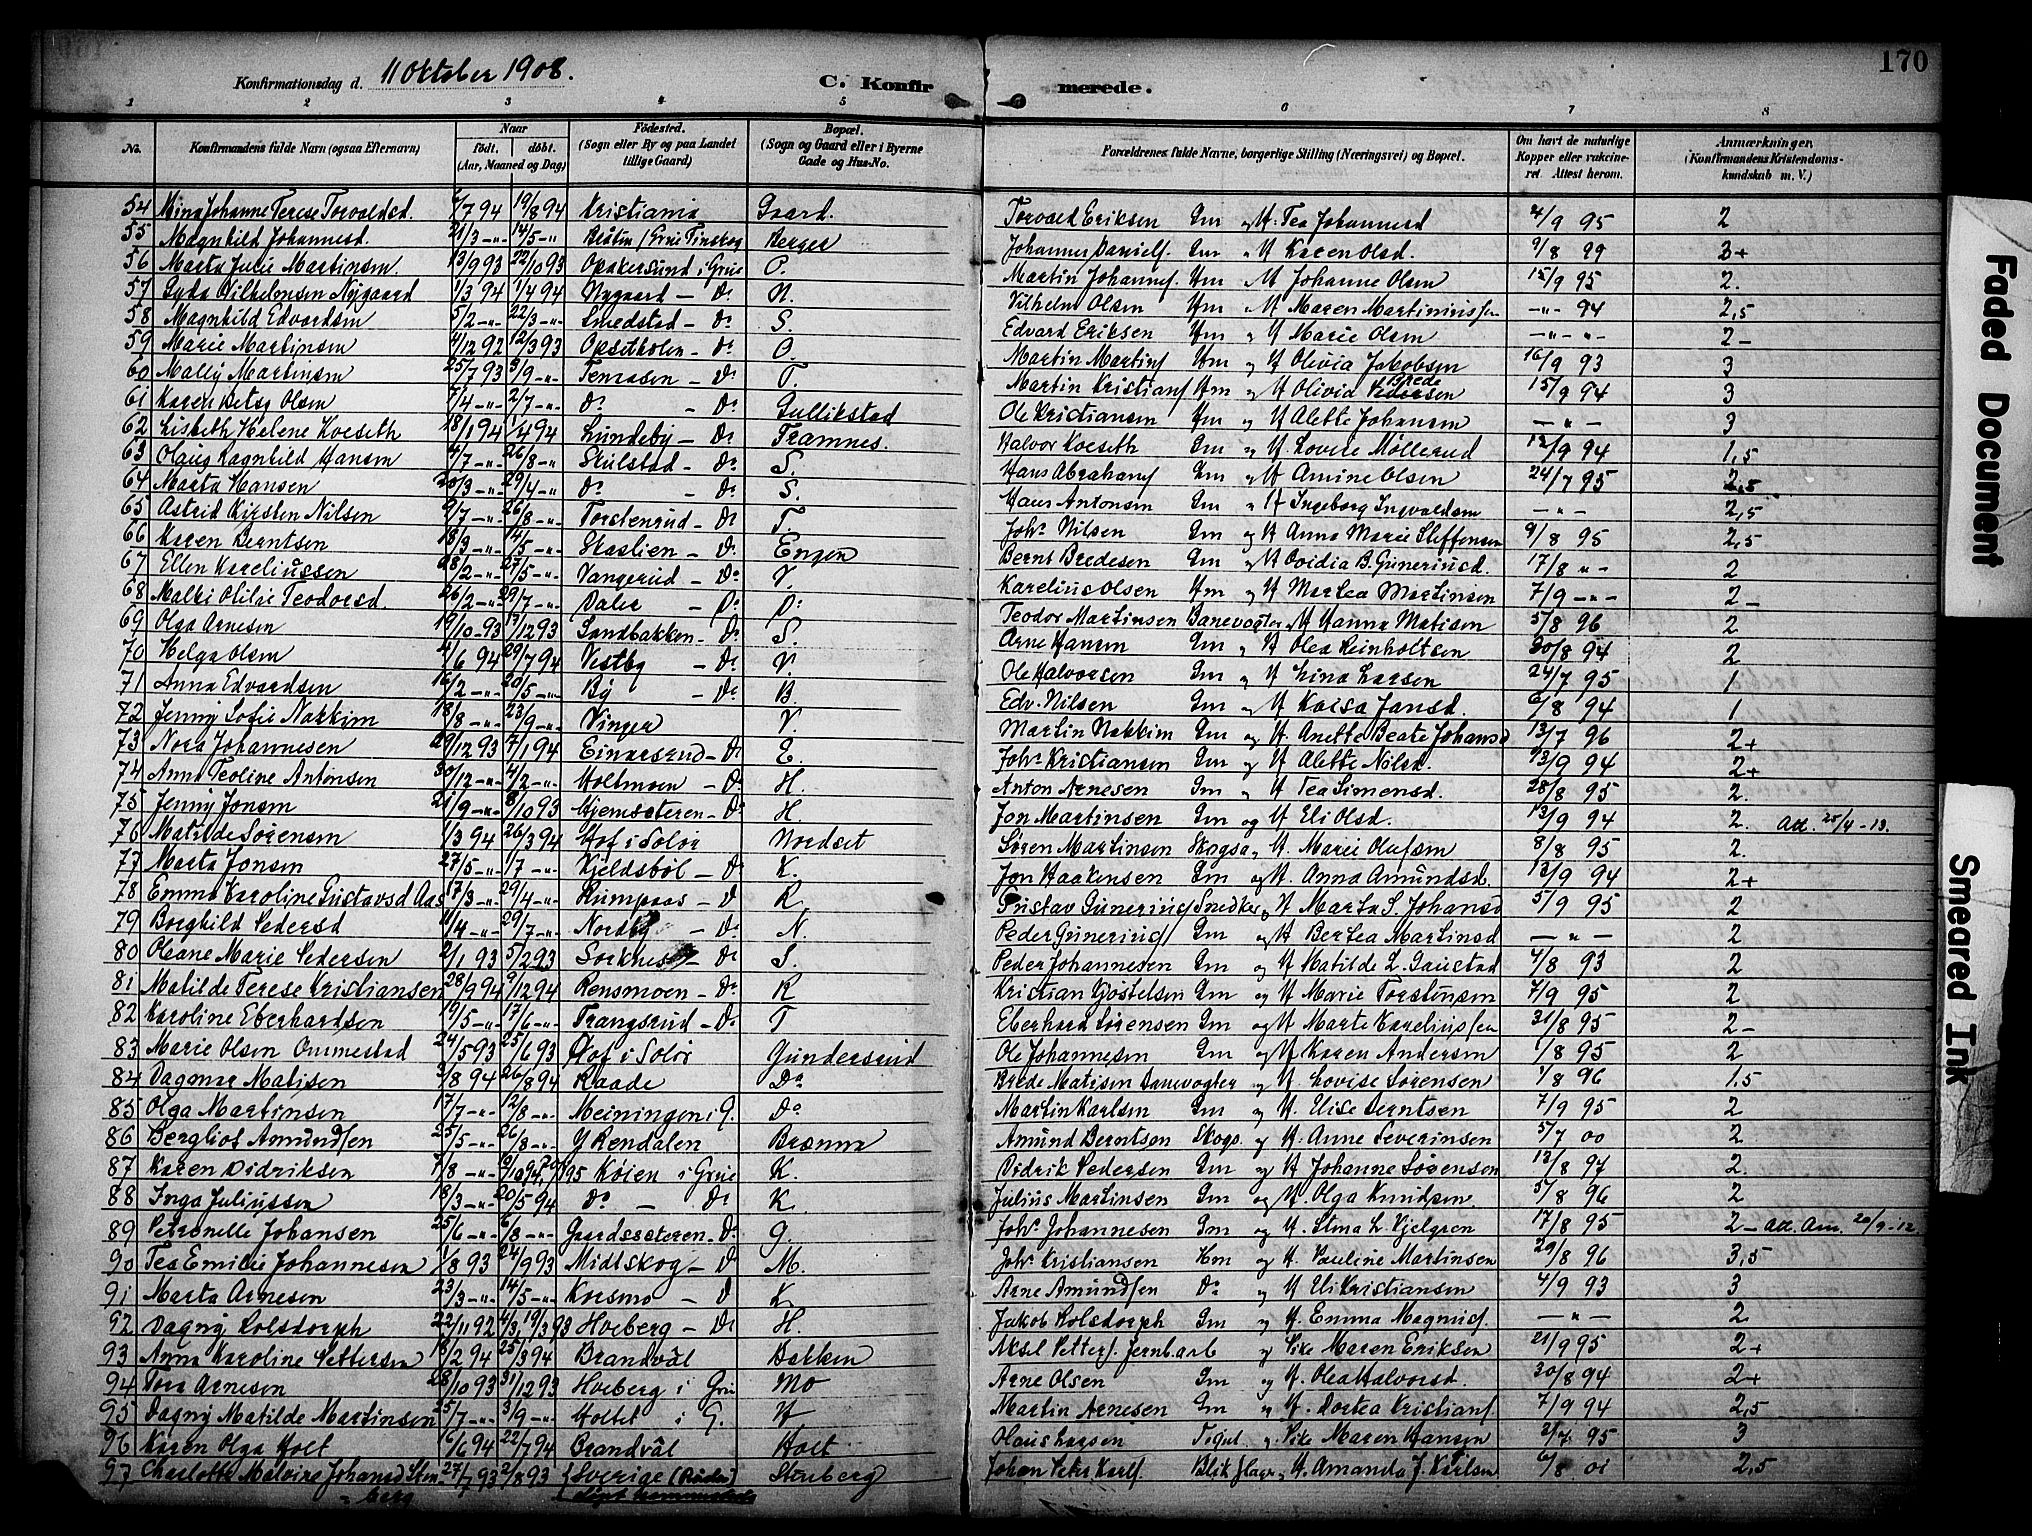 170
Konfirmationsdag d. 11 Oktober 1908.
C. Konfirmerede.
1 2 3 4 5 6 7 8
No. Konfirmandens fulde Navn (ogsaa Efternavn) Naar født. døbt. (Aar, Maaned og Dag) Fødested. (Sogn eller By og paa Landet tillige Gaard) Bopæl. (Sogn og Gaard eller i Byerne Gade og Hus-No. Forældrenes fulde Navne, borgerlige Stilling (Næringsvei) og Bopæl. Om havt de naturlige Kopper eller vaccineret. Attest herom. Anmærkninger. (Konfirmandens Kristendomskundskab m. V.)
54 Mina Johanne Terese Torvaldsd. 6/7 94 19/8 94 Kristiania Gaard. Torvald Eriksen Gm og H. Tea Johannesd 4/9 95 2
55 Magnhild Johannesd. 21/3 -"- 14/5 -" Grue Finskog Berger Johannes Danielf. Gm " H Karen Olsd. 9/8 99 3+
56 Marta Julie Martinsen. 13/9 93 22/10 93 Opakersund i Grue O. Martin Johannesf. Hm " H Johanne Olsen 15/9 95 2.
57 Gyda Vilhelmsen Nygaard 1/3 94 1/4 94 Nygaard - Do N. Vilhelm Olsen Hm " H Maren Martiniussen -"- 94 2,5
58 Magnhild Edvardsen 5/2 -"- 22/3 -"- Smedstad - Do S. Edvard Eriksen Hm og H Marie Olsen -"- -"- 2-
59 Marie Martinsen 4/12 92 12/3 93 Opsetkolen - Do O. Martin Martinsf Hm og H Olivia Jakobsen 16/9 93 3
60 Mally Martinsen 25/7 93 3/9 -"- Temasen - Do T. Martin Kristiansf Hm og H Olivia Brede Pedersen 15/9 94 3
61 Karen Betsy Olsen 7/4 -"- 2/7 -"- Do - Do Gullikstad Ole Kristiansen Hm og H Alette Johansen - " - 3
62 Lisbeth Helene Koeseth 18/1 94 1/4 94 Lundeby - Do Framnes. Halvor Koeseth Gm og H Lovise Møllerud 12/9 94 1,5
63 Olaug Ragnhild Hansen 4/7 -"- 26/8 -" Skulstad - Do S. Hans Abrahamf Gm og H Amine Olsen 24/7 95 2,5
64 Marta Hansen 20/3 -"- 29/4 -"- Do - Do S. Hans Antonsen Gm " H Ingeborg Ingvaldsen - " - 2,5
65 Astrid Kirsten Nilsen 9/7 -"- 26/8 -"- Torstenrud - Do T. Johs Nilsen Gm og H Anna Marie Steffensen 9/8 95 2,5
66 Karen Berntsen 18/3 -"- 14/5 -"- Skaslien - Do. Engen Bernt Bredesen Gm og H Ovidia B. Guneriusd. 17/8 " - 2
67 Ellen Kareliussen 28/2 -"- 27/5 -"- Vangerud - Do V. Karelius Olsen Hm og H Martea Martinsen 7/9 -"- 2-
68 Malli Otilie Teodorsd. 26/2 -"- 29/7 -"- Daler - Do D. Teodor Martinsen Banevogter og H Hanna Matisen 5/8 96 2
69 Olga Arnesen 19/10 -93 17/12 93 Sandbakken - Do S. Arne Hansen Gm " H Olea Reinholtsen 20/8 94 2
70 Helga Olsen 4/6 94 29/7 94 Vestby - Do V. Ole Halvorsen Gm og H Lina Larsen 24/7 95 1
71 Anna Edvardsen 16/2 -"- 20/5 -"- By - Do B. Edv. Nilsen Gm og H Kaisa Jansd. 6/8 94 1
72 Jenny Sofie Nakkim 18/8 -"- 23/9 -"- Vinger V. Martin Nakkim Gm og H. Anette Beate Johansd 13/7 96 2+
73 Nora Johannesen 29/12 93 7/1 94 Einarsrud - Do E. Johs Kristiansen Gm og H Alette Nilsd. 13/9 94 2+
74 Anna Teoline Antonsen 30/12 -"- 4/2 -"- Holtmoen - Do H. Anton Arnesen Gm " H Tea Simensd. 28/8 95 2.
75 Jenny Jonsen 21/9 -"- 8/10 93 Hjemseteren - Do H. Jon Martinsen Gm og H Eli Olsd. 13/9 94 2. Att. 25/4 -13.
76 Matilde Sørensen 1/3 94 26/3 94 Hof i Solør Nordset Søren Martinsen Skogsa " H Marie Olufsen 8/8 95 2.
77 Marta Jonsen 27/5 -"- 1/7 -"- Kjeldsbøl - Do K. Jon Haakensen Gm og H. Anna Amundsd. 12/9 94 2+
78 Emma Karoline Gustavsd Aas 17/3 -"- 29/4 -"- Rumpaas - D R. Gustav Guneriusf Snedker og H Marta S. Johansd 5/9 95 2
79 Borghild Pedersd 11/4 -"- 29/7 -"- Nordby - Do N. Peder Guneriusf Gm og H Bertea Martinsd - " - 2
80 Oleane Marie Pedersen 2/1 93 5/2 93 Sorknes - Do S. Peder Johannesen Gm og H Matilde L. Gaustad 4/8 93 2
81 Matilde Terese Kristiansen 28/9 94 9/12 94 Rensmoen - Do R Kristian Gjøstelsen Gm og H Marie Torstensen 7/9 95 2
82 Karoline Eberhardsen 19/5 -"- 17/6 -"- Trangsrud - Do T Eberhard Sørensen Gm og H Marte Kareliussen 31/8 95 2-
83 Marie Olsen Ommestad 24/5 93 25/6 93 Hof i Solør Gundersrud Ole Johannesen Gm og H Karen Andersen 1/8 95 2
84 Dagmar Matisen 3/8 94 26/8 94 Raade Do Brede Matisen Banevogter og H. Lovise Sørensen 1/8 96 1,5
85 Olga Martinsen 17/7 -"- 12/8 -"- Meiningen i G. Do Martin Karlsen Gm og H. Elise Berntsen 7/9 95 2
86 Bergliot Amundsen 25/5 -"- 26/8 -"- Y. Rendalen Brænna Amund Berntsen Skogs. og H. Anne Severinsen 5/7 00 2
87 Karen Didriksen 7/8 -"- Køien i Grue K. Didrik Pedersen Gm og H Johanne Sørensen 13/8 97 2.
88 Inga Juliussen 18/3 -"- 20/5 94 Do - Do K. Julius Martinsen Gm og H. Olga Knudsen 5/8 96 2
89 Petronelle Johansen 25/6 -"- 6/8 -"- Gaardsseteren - Do G. Johs Johannesen Gm og H. Stina L. Kjelgren 17/8 95 2- Att. Am. 20/9 -12.
90 Tea Emilie Johannesen 1/8 93 24/9 93 Midtskog - D M. Johs Kristiansen Hm og H. Pauline Martinsen 29/8 96 3,5
91 Marta Arnesen 23/3 -"- 14/5 -"- Korsmo - D K. Arne Amundsen Do og H Eli Kristiansen 4/9 93 3
92 Dagny Rolsdorph 22/11 92 19/3 93 Hveberg - Do H. Jakob Rolsdorph Gm og H. Emma Magnusf. - " - 2
93 Anna Karoline Pettersen 18/2 94 25/3 94 Brandval Bakken Aksel Petters. Jernb.arb og Pike Maren Eriksen 21/9 95 2+
94 Tora Arnesen 28/10 93 31/12 93 Hveberg i Gru Mo Arne Olsen Gm og H. Olea Halvorsd. 30/8 94 2+
95 Dagny Matilde Martinsen 25/7 -"- 3/9 -"- Holtet i G. H Martin Arnesen Gm og H. Dortea Kristiansf 7/9 94 2,5
96 Karen Olga Holt 16/6 94 22/7 94 Brandval Holt Olaus Larsen og Pike Maren Hansen 2/7 95 3
97 Charlotte Malvina Johansd Stenberg 27/7 93 2/8 93 Sverige Stenberg Johan Peter Karlf. og H Amanda J. Karlsen 6/8 01 2,5
Faded Document
Smeared Ink